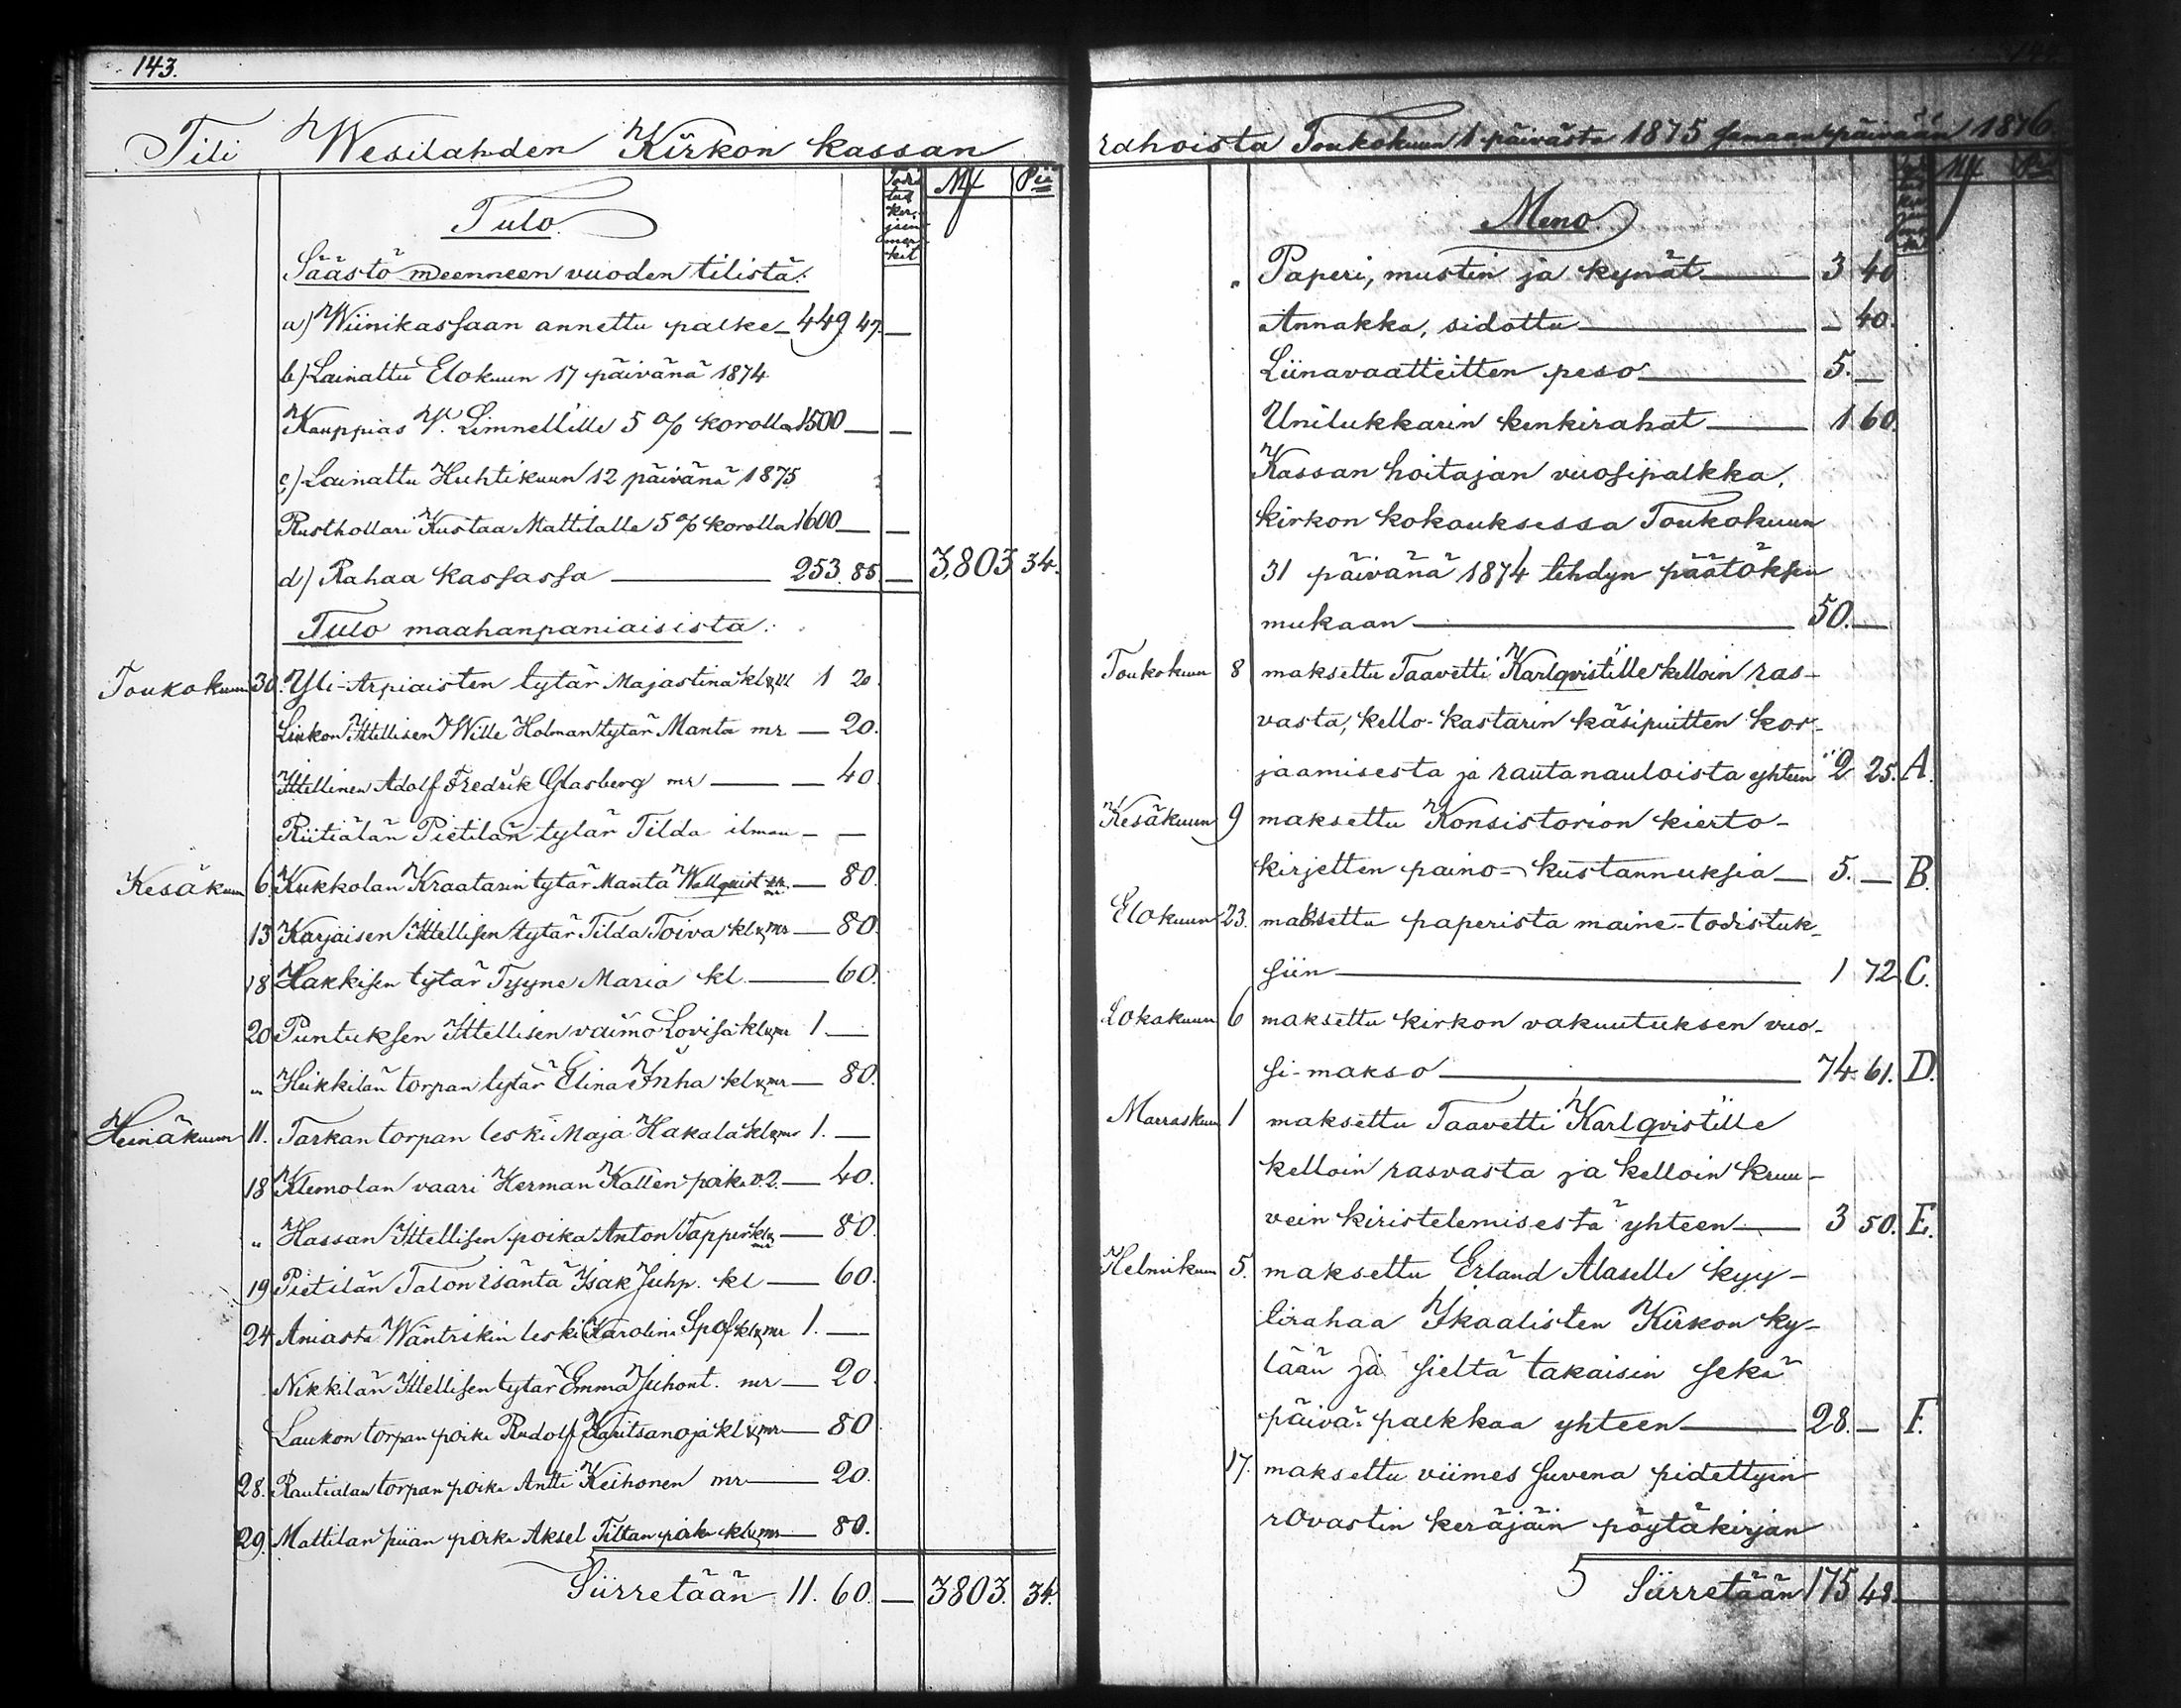 143.
Tili Wesilahden Kirkon kassan
Todis tus ker- jein mer kit Mk Pii
Tulo.
Säästö meenneen vuoden tilistä:
a) Wiinikassaan annettu palke 449. 47. —
b) Lainattu Elokuun 17 päivänä 1874
Kauppias W. Limnellille 5 % korolla 1500 — —
c) Lainattu Huhtikuun 12 päivänä 1875
Rusthollari Kustaa Mattilalle 5 % korolla 1600 — —
d) Rahaa kassassa — 253. 85. — 3,803 34.
Tulo maahanpaniaisista:
Toukokuun 30. Yli-Arpiaisten tytär Majastina kl 1 20.
Liukon Ittellisen Wille Holman tytär Manta mr — 20.
Ittellinen Adolf Fredrik Glasberg mr — — 40
Riitiälän Pietilän tytär Tilda ilman — —
Kesäkuun 6. Kukkolan Kraatarin tytär Manta Wallquist — 80.
13 Karjaisen Ittellisen tytär Tilda Toiva kl & mr — 80.
18 Hakkisen tytär Tyyne Maria kl — 60.
20 Puntuksen Ittellisen vaimo Lovisa kl & mr 1. —
„ Heikkilän torpan tytär Elina Inha kl & mr — 80.
Heinäkuun 11. Tarkan torpan leski Maja Hakala kl & mr 1. —
18 Klemolan vaari Herman Kallen poika v. 2. — 40.
„ Hassan Ittellisen poika Anton Tapper kl & mr — 80.
19 Pietilän Talon isäntä Isak Juhp. kl — 60.
24 Aniasta Wäntrikin leski Karolina Spof kl & mr 1. —
Nikkilän Ittellisen tytär Emma Juhont. mr — 20.
Laukon torpan poika Rudolf Karitsanoja kl & mr — 80
28. Rautialan torpan poika Antti Keihonen mr — 20.
29. Mattilan piian poika Aksel Tiltan poika kl & mr — 80.
Siirretään 11. 60. — 3803. 34.
rahoista Toukokuun 1 päivästä 1875 samaan päivään 1876
Mk
Meno.
„ Paperi, mustin ja kynät — 3 40
Annakka, sidottu — — 40.
Liinavaatteitten peso — 5. —
Unilukkarin kenkirahat — 1 60.
Kassan hoitajan vuosipalkka,
kirkon kokouksessa Toukokuun
31 päivänä 1874 tehdyn päätöksen
mukaan — 50. —
Toukokuun 8 maksettu Taavetti Karlqvistille kelloin ras-
vasta, kello-kastarin käsipuitten kor-
jaamisesta ja rautanauloista yhteen 2 25. A.
Kesäkuun 9 maksettu Konsistorion kierto-
kirjetten paino-kustannuksia — 5. — B.
Elokuun 23. maksettu paperista maine-todistuk-
siin — 1 72 C.
Lokakuun 6 maksettu kirkon vakuutuksen vuo-
si-makso — 74. 61. D.
Marraskuun 1 maksettu Taavetti Karlqvistille
kelloin rasvasta ja kelloin kruu-
vein kiristelemisestä yhteen — 3 50. E.
Helmikuun 5. maksettu Erland Alaselle kyy-
tirahaa Ikaalisten Kirkon ky-
lään ja sieltä takaisin sekä
päivä-palkkaa yhteen — 28. — F.
17. maksettu viimes suvena pidettyin
rovastin keräjäin pöytäkirjan
Siirretään 175 48.